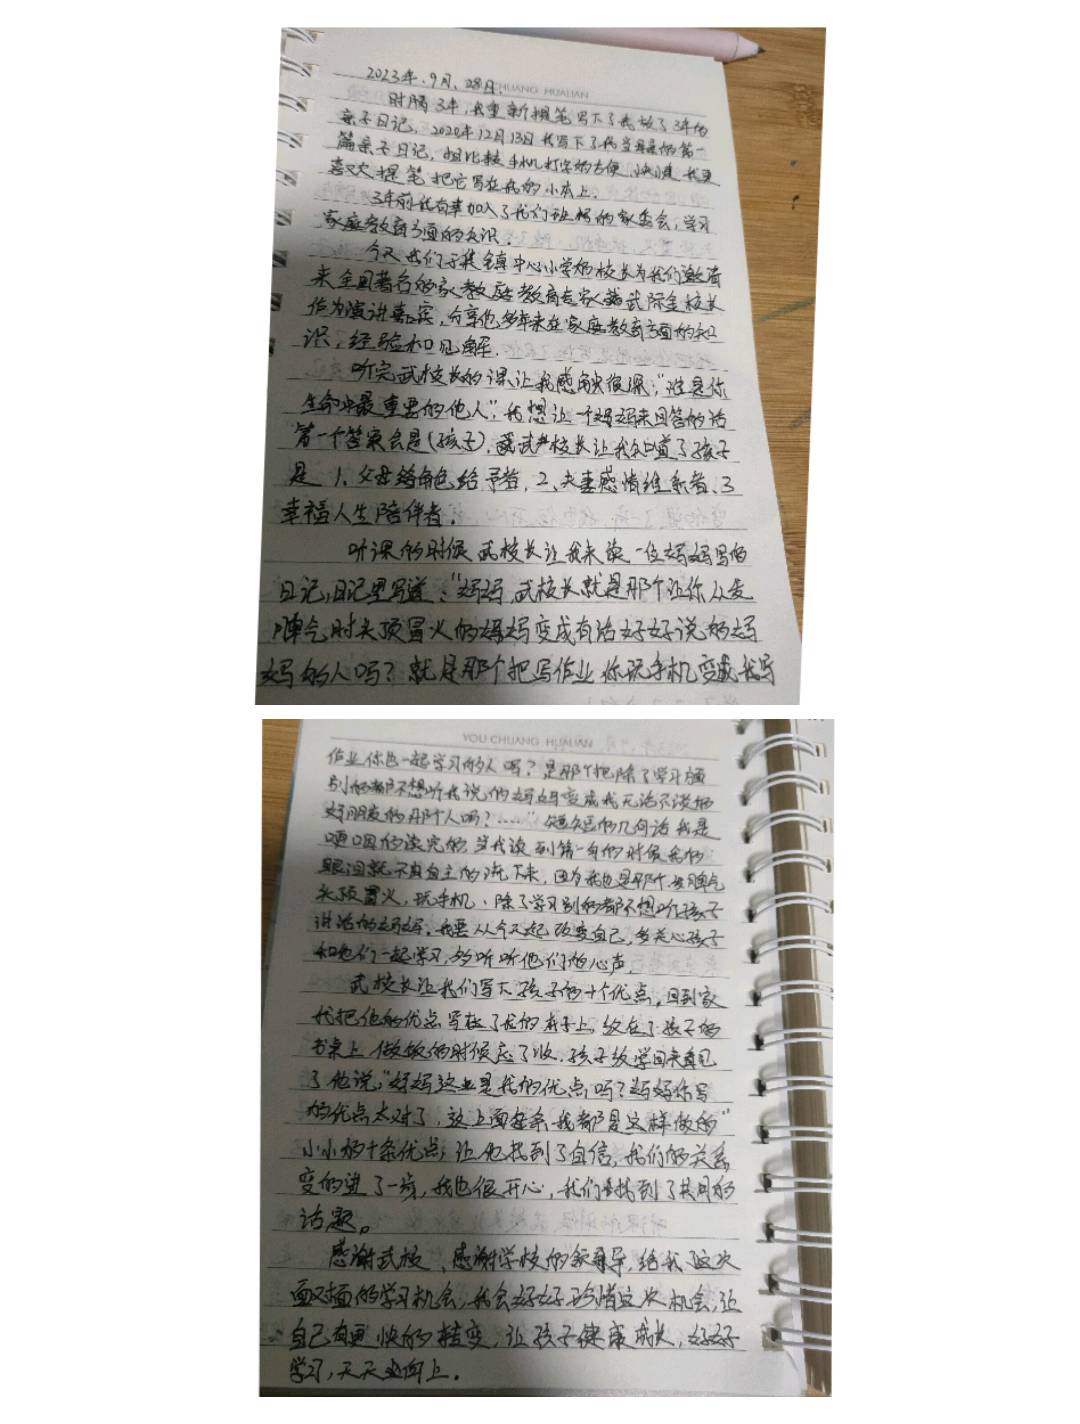 YOU CHUANG HUALIAN
2023年.9月.28日.
时隔3年,我重新提笔写下了我放了3年的
亲子日记,2020年12月13日我写下了我的第一
篇亲子日记,相比较手机打字的方便、快捷我更
喜欢提笔把它写在我的小本上。
3年前我有幸加入了我们班妈的家委会,学习
家庭教育方面的知识。
今天我们镇中心小学的校长为我们邀请
来全国著名的家教庭教育专家武际金校长
作为演讲嘉宾,分享他多年来在家庭教育方面的知
识,经验和见解.
听完武校长的课让我感触很深,“谁是你
生命中最重要的他人”,我想让一个妈妈来回答的话
第一个答案会是(孩子),武校长让我知道了孩子
是1、父母角色给予者,2、夫妻感情维系者、3
幸福人生陪伴者。
听课的时候武校长让我来读一位妈妈写的
日记,日记里写道:“妈妈,武校长就是那个让你从发
脾气时头顶冒火的妈妈变成有话好好说的妈
妈的人吗?就是那个把写作业你玩手机变成我写
YOU CHUANG HUALIAN
作业你也一起学习的人吗?是那个把除了学习
别的都不想听我说的妈妈变成我无话不谈的
好朋友的那个人吗?……”短短的几句话我是
哽咽的读完的,当我读到第一句的时候我的
眼泪就不由自主的流下来,因为我也是那个发脾气
头顶冒火,玩手机、除了学习别的都不想听孩子
讲话的妈妈,我要从今天起改变自己,多关心孩子
和他们一起学习,多听听他们的心声。
武校长让我们写下孩子的十个优点,回到家
我把他的优点写在了我的本子上,放在了孩子的
书桌上做饭的时候忘了收,孩子放学回来看见
了他说,“妈妈这些是我的优点吗?妈妈你写
的优点太对了,这上面每条我都是这样做的”
小小的十条优点,让他找到了自信,我们的关系
变的进了一步,我也很开心,我们找到了共同的
话题。
感谢武校,感谢学校的领导,给我这次
面对面的学习机会,我会好好珍惜这次机会,让
自己有更快的转变,让孩子健康成长,好好
学习,天天向上。